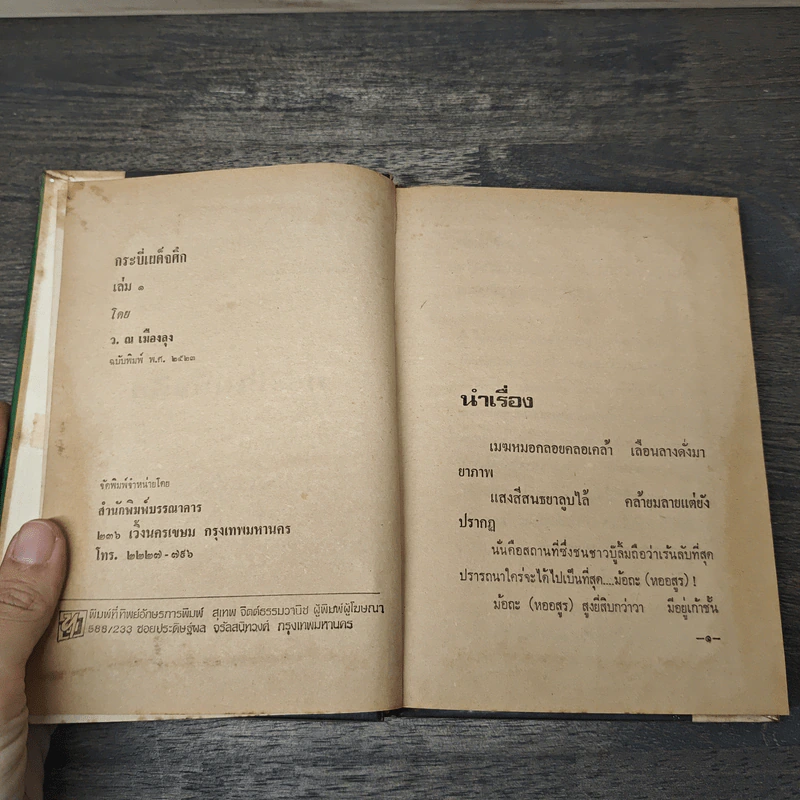 กระบี่เผด็จศึก
เล่ม ๑
โดย
ว. ณ เมืองลุง
ฉบับพิมพ์ พ.ศ. ๒๕๒๓
จัดพิมพ์จำหน่ายโดย
สำนักพิมพ์บรรณาคาร
๒๓๖ เวิ้งนครเขษม กรุงเทพมหานคร
โทร. ๒๒๒๗-๗๙๖
พิมพ์ที่ทิพย์อักษรการพิมพ์ สุเทพ จิตต์ธรรมวานิช ผู้พิมพ์ผู้โฆษณา
588/233 ซอยประดิษฐ์ผล จรัลสนิทวงศ์ กรุงเทพมหานคร
นำเรื่อง
เมฆหมอกลอยคลอเคล้า เลือนลางดั่งมา
ยาภาพ
แสงสีสนธยาลูบไล้ คล้ายมลายแต่ยัง
ปรากฏ
นั่นคือสถานที่ซึ่งชนชาวบู๊ลิ้มถือว่าเร้นลับที่สุด
ปรารถนาใคร่จะได้ไปเป็นที่สุด....ม้อถะ (หออสูร) !
ม้อถะ (หออสูร) สูงยี่สิบกว่าวา มีอยู่เก้าชั้น
—๑—